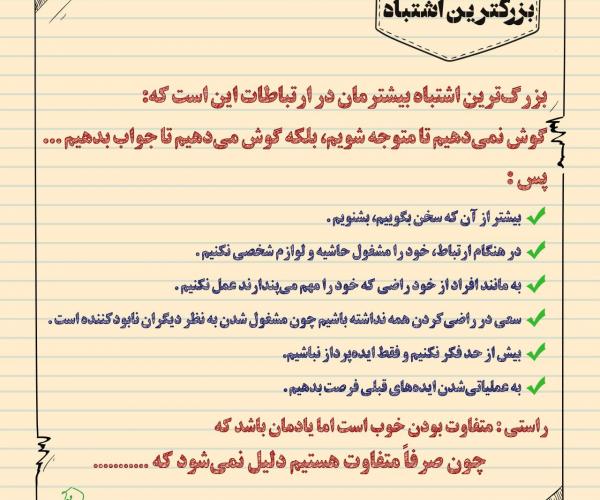 بزرگترین اشتباه
بزرگ‌ترین اشتباه بیشترمان در ارتباطات این است که:
گوش نمی‌دهیم تا متوجه شویم، بلکه گوش می‌دهیم تا جواب بدهیم ...
پس :
بیشتر از آن که سخن بگوییم، بشنویم .
در هنگام ارتباط، خود را مشغول حاشیه و لوازم شخصی نکنیم .
به مانند افراد از خود راضی که خود را مهم می‌پندارند عمل نکنیم .
سعی در راضی‌کردن همه نداشته باشیم چون مشغول شدن به نظر دیگران نابودکننده است .
بیش از حد فکر نکنیم و فقط ایده‌پرداز نباشیم.
به عملیاتی‌شدن ایده‌های قبلی فرصت بدهیم .
راستی : متفاوت بودن خوب است اما یادمان باشد که
چون صرفاً متفاوت هستیم دلیل نمی‌شود که ...........